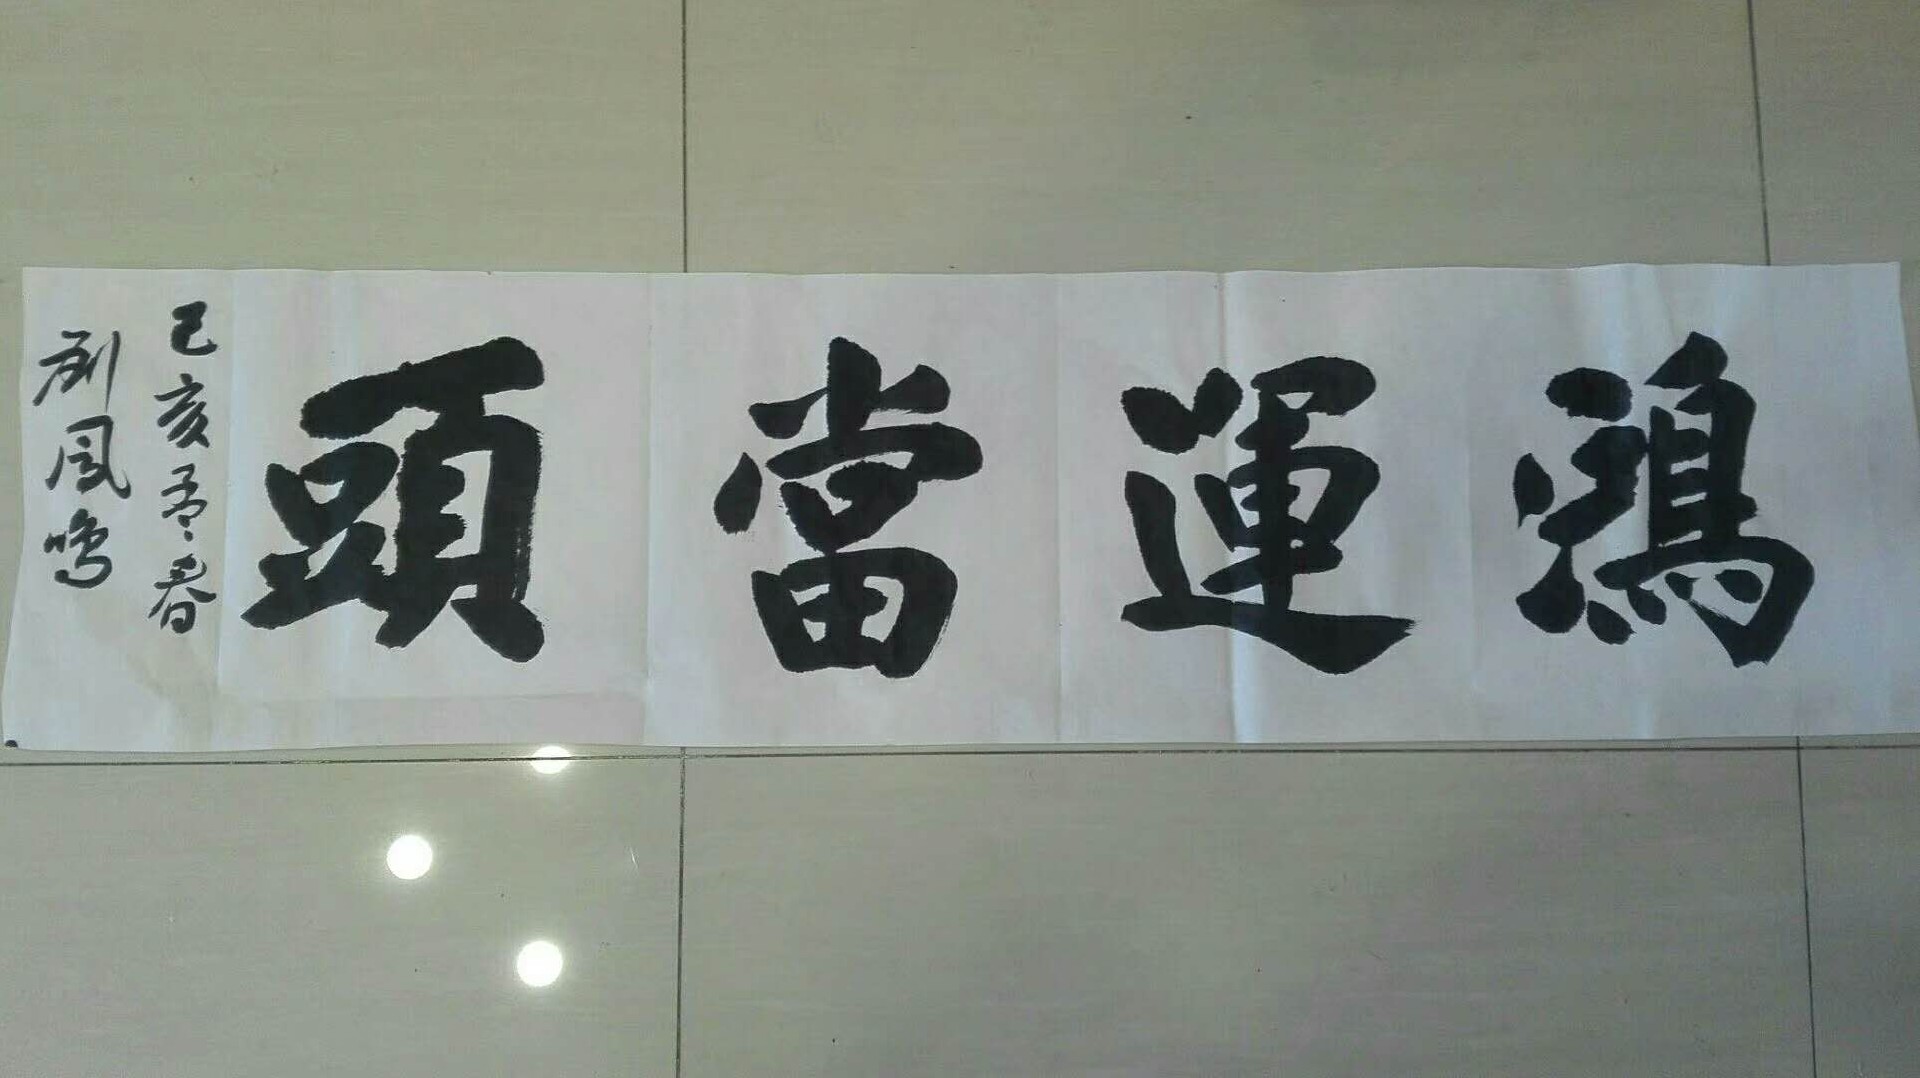 鴻運當頭
己亥孟春
劉鳳鳴